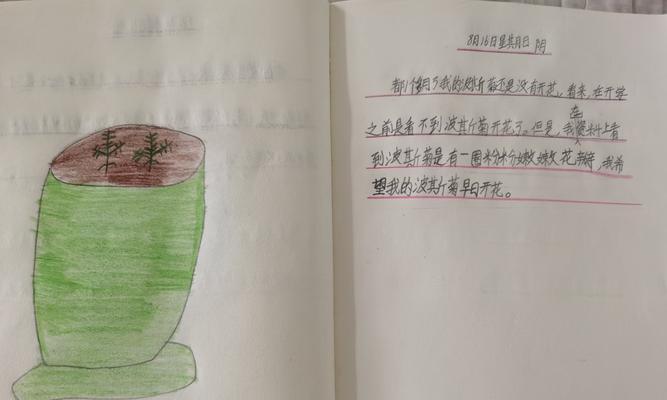 8月16日星期日 阴
都1个月了我的波斯菊还是没有开花。看来,在开学
之前是看不到波其斤菊开花了。但是,我在资料上看
到波其斤菊是有一圈粉粉嫩嫩花瓣,我希
望我的波其斤菊早日开花。